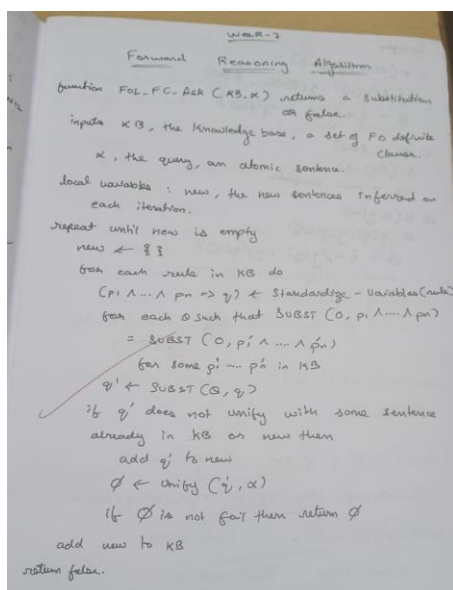 WEEK-7
Forward Reasoning Algorithm
function FOL-FC-Ask (KB, α) returns a substitution
or false.
inputs KB, the Knowledge base, a set of FO definite
clause.
α, the query, an atomic sentence.
local variables : new, the new sentences inferred on
each iteration.
repeat until new is empty
new ← { }
for each rule in KB do
(p1 ∧ ... ∧ pn => q) ← Standardize - Variables (rule)
for each Θ such that SUBST (Θ, p1 ∧ ... ∧ pn)
= SUBST (Θ, p1' ∧ ... ∧ pn')
for some p1' ... pn' in KB
q' ← SUBST (Θ, q)
if q' does not unify with some sentence
already in KB or new then
add q' to new
Ø ← Unify (q', α)
if Ø is not fail then return Ø
add new to KB
return false.